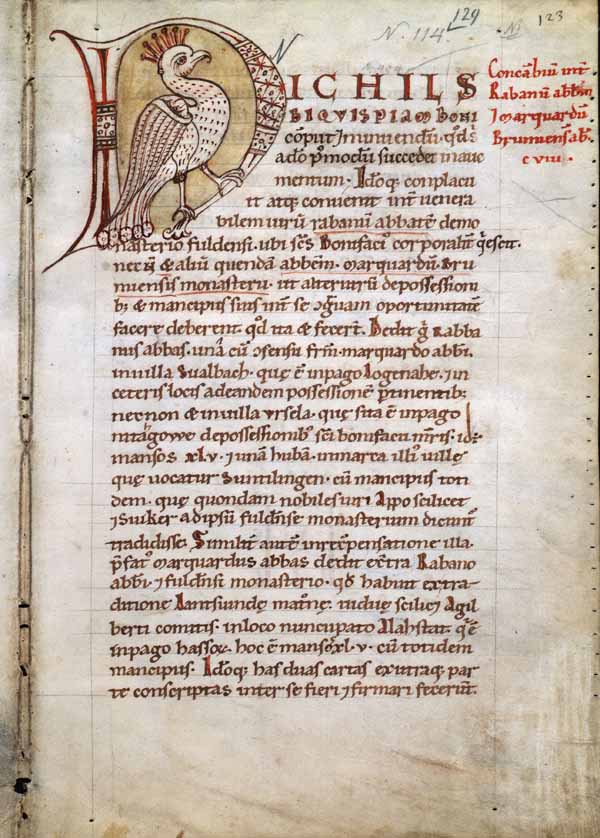 N. 114. 129 N 123
Concābiū int̄
Rabanū abb̄m
⁊ marquardū
Brumiensē ab̄
c viii ·
NICHIL S
IBI QVIS PIAM BONI
cōput ⁊muniendū · qd̄
ad oc̄ p̄modum succedere
mentum · Idoq; conplacu
it atq; convenit int̄ venera
bilem virū rabanū abbatē de mo
nasterio fuldensi · ubi sc̄s Bonifaci᷒ corporalit̄ q̄escit ·
nec ñ & aliū quendā abbēm · marquardū · Bru
miensis monasterii · ut alterutrū de possessioni
b; & mancipiis suis int̄ se ɔgruam oportunitatē
facere deberent · qd̄ ita & fecerт̄ · Dedit ḡ Rabba
nus abbas · una cū ɔsensu frm̄ · marquardo abb̄i ·
in villa Sualbach · quę ē in pago logenahe · ⁊ in
ceteris locis ad eandem possessionē p̄tinentib;
necnon & in villa ursela · quę sita ē in pago
nitagowe de possessionib᷒ sc̄i bonifacii mr̄is · id ē
mansos xlv · ⁊ unā hubā · in marca illi᷒ villę
quę vocatur Suntilingen · cū mancipiis toti
dem · quę quondam nobiles viri Appo scilicet
⁊ Suiker ad ipsū fuldn̄se monasterium dicunt̄
tradidisse · Similit̄ autē in reɔpensatione illa ·
p̄fat᷒ marquardus abbas dedit ec̄tra Rabano
abb̄i · ⁊ fuldn̄si monasterio · qd̄ habuit ex tra-
ditione Lantsuindę matr̄ne · viduę scilic̄ Agil
berti comitis · in loco nuncupato Alahstat · q̄ ē
in pago hassox · hoc ē mansos xl · v · cū totidem
mancipiis · Idoq; has duas cartas ex utraq; par
te conscriptas inter se fieri ⁊ firmari fecerūt ·